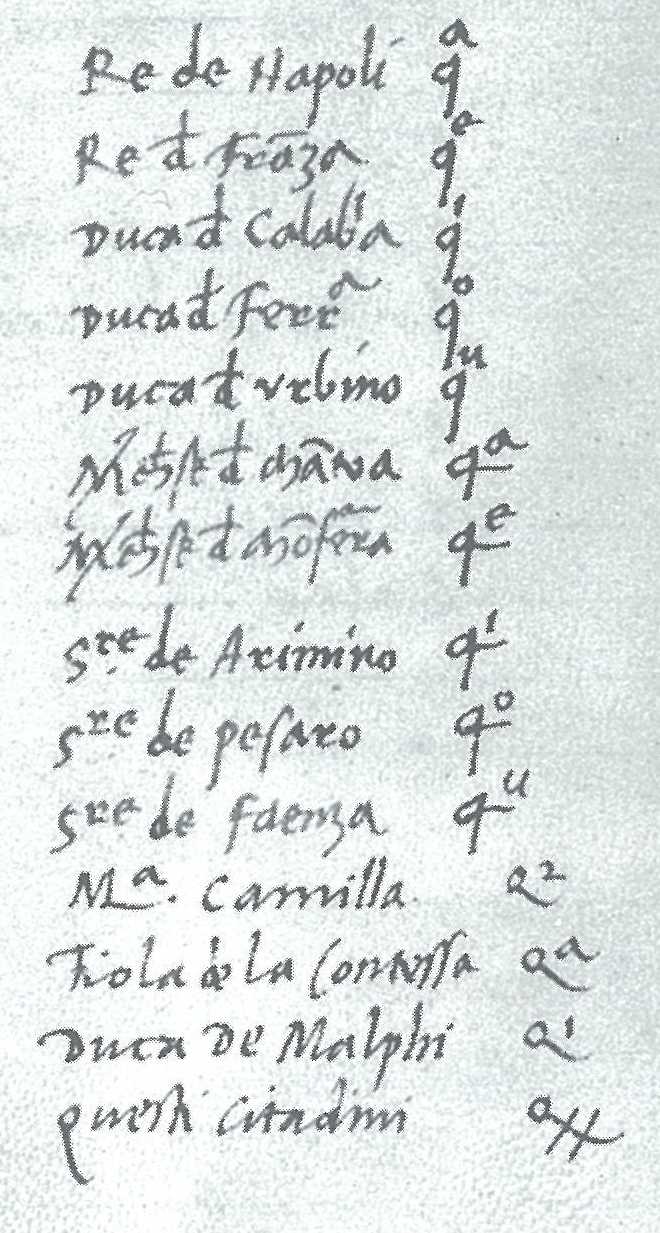 Re de Napoli qᵃ
Re đ Frāza qᵉ
Duca đ Calab'a qⁱ
Duca đ Ferrᵃ qᵒ
Duca đ Urbino qᵘ
đ Mātua qᵃ
đ Mōfer̄a qᵉ
Sʳᵉ de Arimino qⁱ
Sʳᵉ de pesaro qᵒ
Sʳᵉ de faenza qᵘ
Mᵃ. Camilla Q²
Fiola la Contessa Qᵃ
Duca De Malphi Qⁱ
questi Citadini